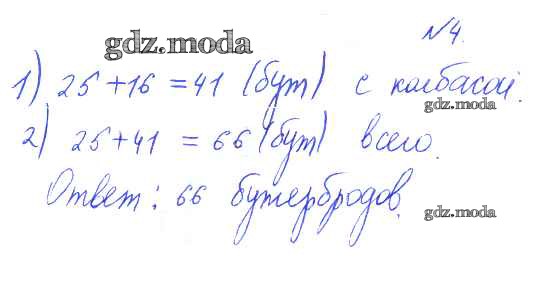 №4.
gdz.moda
1) 25+16 =41 (бут) с колбасой.
gdz.moda
2) 25+41 = 66 (бут) всего.
Ответ: 66 бутербродов.
gdz.moda